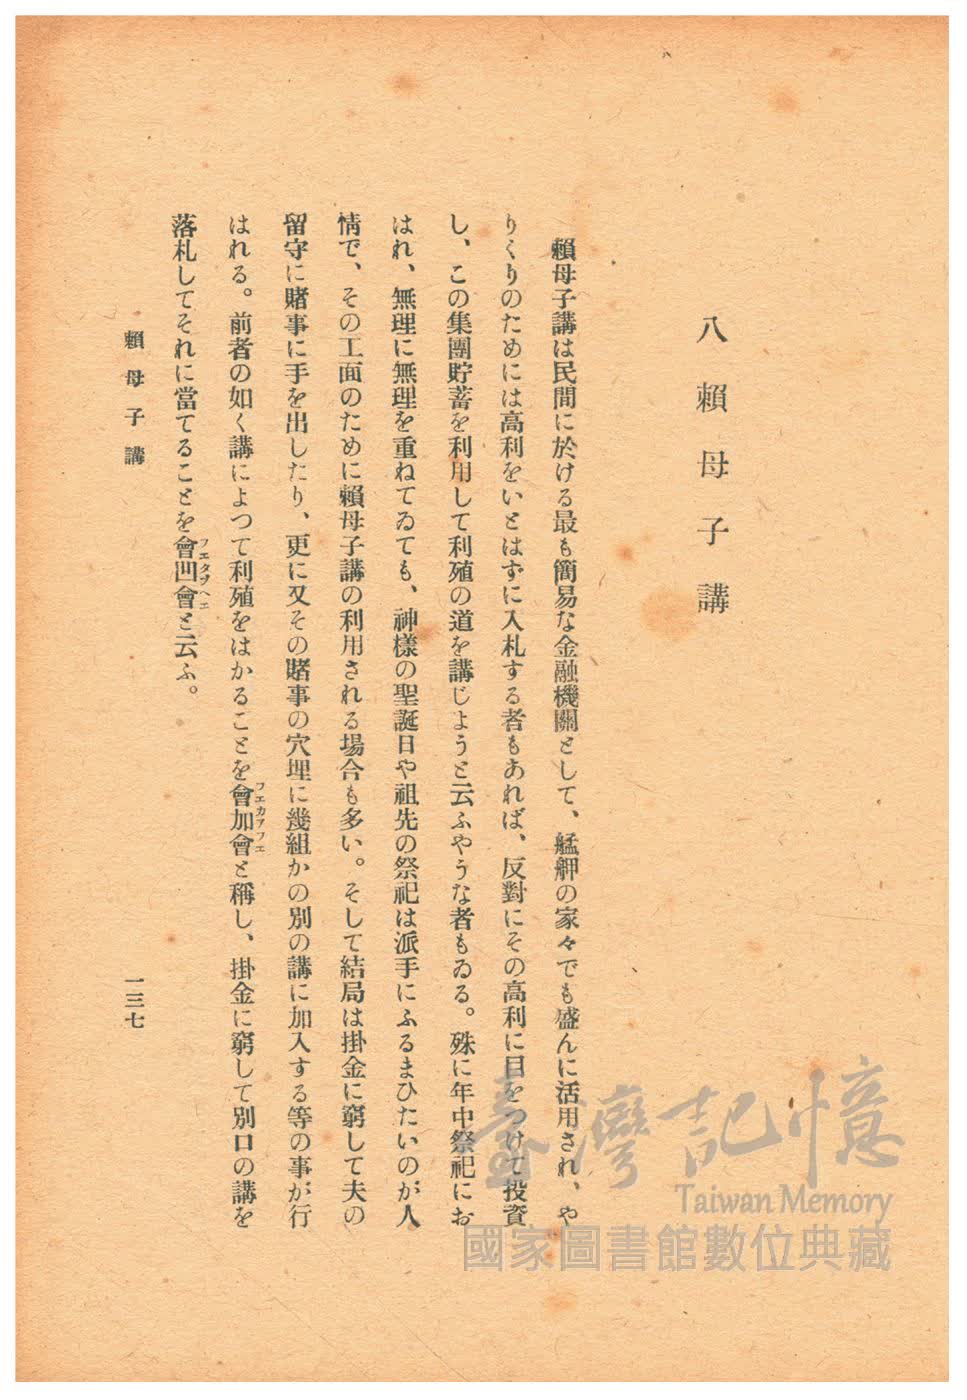 八　賴母子講
賴母子講は民間に於ける最も簡易な金融機關として、艋舺の家々でも盛んに活用され、や
りくりのためには高利をいとはずに入札する者もあれば、反對にその高利に目をつけて投資
し、この集團貯蓄を利用して利殖の道を講じようと云ふやうな者もゐる。殊に年中祭祀にお
はれ、無理に無理を重ねてゐても、神樣の聖誕日や祖先の祭祀は派手にふるまひたいのが人
情で、その工面のために賴母子講の利用される場合も多い。そして結局は掛金に窮して夫の
留守に賭事に手を出したり、更に又その賭事の穴埋に幾組かの別の講に加入する等の事が行
はれる。前者の如く講によつて利殖をはかることを會加會と稱し、掛金に窮して別口の講を
フエカアフエ
落札してそれに當てることを會凹會と云ふ。
賴母子講
一三七
臺灣記憶
Taiwan Memory
國家圖書館數位典藏